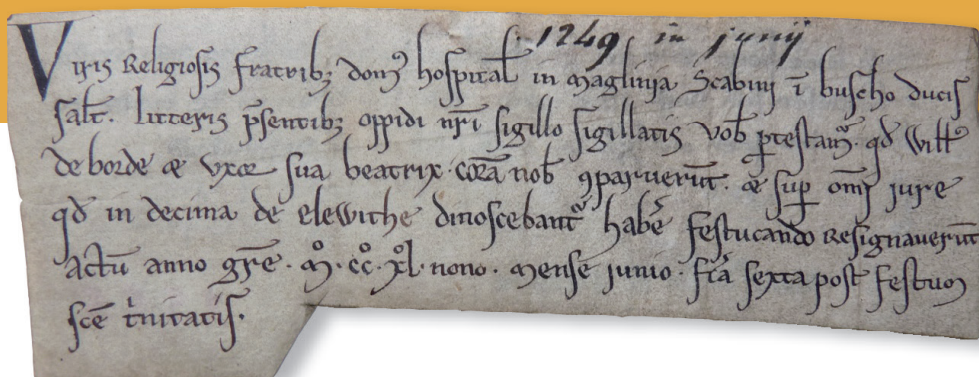 1249 in junij
Viris Religiosis fratribꝫ domꝰ hospital̄ in maglinia Scabini ī buscho ducis
salt̄. litteris p̄sentibꝫ oppidi nr̄i sigillo sigillatis vob̄ ꝓtestam̄ᷓ. qd̄ Will̄s
de borde ⁊ vxor sua beatrix. corā nob̄ ꝯparuerūt. ⁊ suꝑ om̄i jure
qd̄ in decima de elewithe dinoscebantᷓ habēͤ festucando resignaverūt
actū anno gr̄e. mͦ. ccͦ. xͦl. nono. mense junio. fr̄ia sexta post festum
sc̄e tͥnitatis.